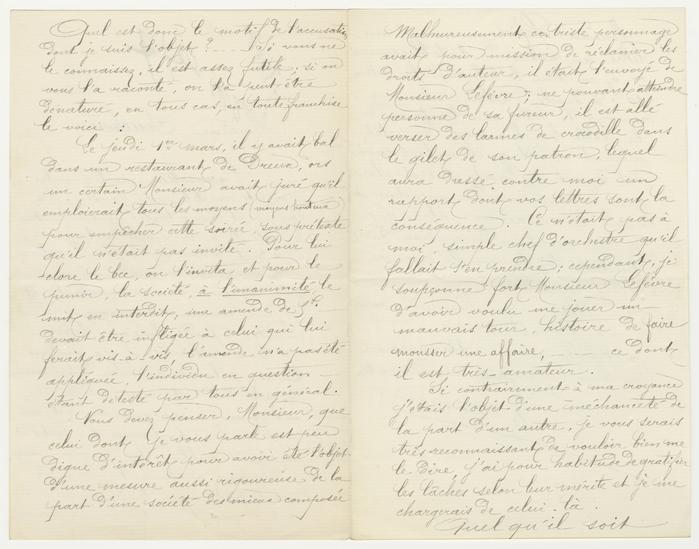 Quel est donc le motif de l'accusation
dont je suis l'objet ?.... Si vous ne
le connaissez, il est assez futile ; si on
vous l'a raconté, on l'a peut-être
dénaturé, en tous cas, en toute franchise
le voici :
Le jeudi 1er mars, il y avait bal
dans un restaurant de Dreux, ors
un certain Monsieur avait juré qu'il
emploierait tous les moyens
pour empêcher cette soirée, sous prétexte
qu'il n'était pas invité. Pour lui
clore le bec, on l'invita et pour le
punir, la société, à l'unanimité le
mit en interdit, une amende de 5f.
devait être infligée à celui qui lui
ferait vis-à-vis, l'amende n'a pas été
appliquée, l'individu en question
étant détesté par tous en général.
Vous devez penser, Monsieur, que
celui dont je vous parle est peu
digne d'intérêt pour avoir été l'objet
d'une mesure aussi rigoureuse de la
part d'une société des mieux composée
Malheureusement ce triste personnage
avait pour mission de réclamer les
droits d'auteur, il était l'envoyé de
Monsieur Lefèvre ; ne pouvant atteindre
personne de sa fureur, il est allé
verser des larmes de crocodille dans
le gilet de son patron, lequel
aura dressé contre moi un
rapport dont vos lettres sont la
conséquence. Ce n'était pas à
moi, simple chef d'orchestre qu'il
fallait s'en prendre ; cependant, je
soupçonne fort Monsieur Lefèvre
d'avoir voulu me jouer un
mauvais tour, histoire de faire
mousser une affaire, ce dont
il est très-amateur.
Si contrairement à ma croyance
j'étais l'objet d'une méchanceté de
la part d'un autre, je vous serais
très-reconnaissant de vouloir bien me
le dire, j'ai pour habitude de gratifier
les lâches selon leur mérite et je me
chargerais de celui-là.
Quel qu'il soit